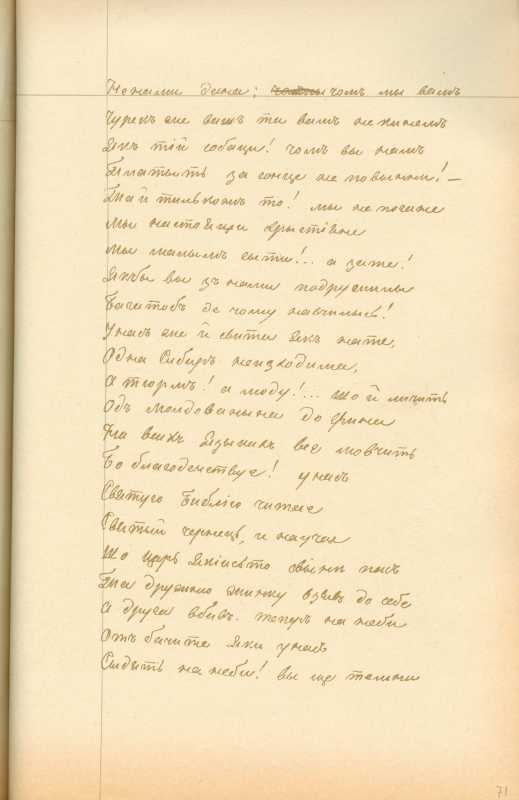 Не нами дана; чомъ мы вамъ
Чурекъ же вашъ та вамъ не кинемъ
Якъ тій собаци! чомъ вы намъ
Платыть за сонце не повынни! —
Та й тилькожъ то! мы не погане
Мы настоящи хрыстіяне
Мы малымъ сыти!.. а за те!
Якбы вы зъ нами подружилы
Багатобъ де чому навчились!
Унасъ же й свита якъ на те,
Одна Сибирь неизходима,
А тюрмъ! а люду!... Що й личить
Одъ Молдованына до Фина
На всихъ языкахъ все мовчить
Бо благоденствує! унасъ
Святую Библію читає
Святый чернець, и научає
Що царь якійсьто свыни пасъ
Та дружню жинку взявъ до себе
А друга вбывъ. теперъ на неби
Отъ бачите яки унасъ
Сыдять на неби! вы ще темни
71